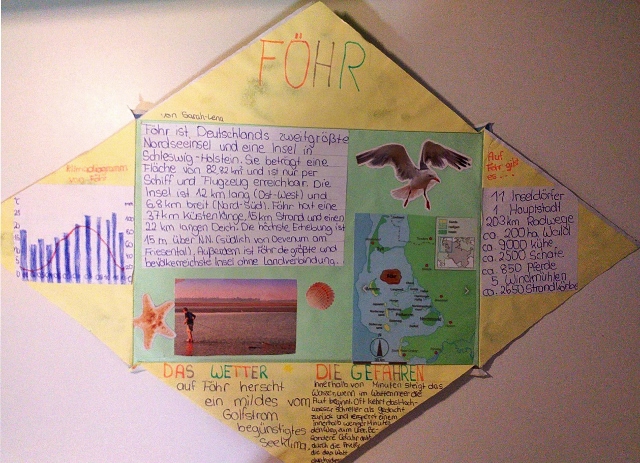 FÖHR
von Sarah-Lena
Föhr ist Deutschlands zweitgrößte
Nordseeinsel und eine Insel in
Schleswig-Holstein. Sie beträgt eine
Fläche von 82,82 km² und ist nur per
Schiff und Flugzeug erreichbar. Die
Insel ist 12 km lang (Ost-West) und
6,8 km breit (Nord-Süd). Föhr hat eine
37 km Küstenlänge, 15 km Strand und einen
22 km langen Deich. Die höchste Erhebung ist
13 m über NN (südlich von Oevenum am
Friesental). Außerdem ist Föhr die größte und
bevölkerreichste Insel ohne Landverbindung.
Klimadiagramm
von Föhr
Auf
Föhr gibt
es ...
11 Inseldörfer
1 Hauptstadt
203 km Radwege
ca. 200 ha Wald
ca. 9000 Kühe
ca. 2500 Schafe
ca. 850 Pferde
5 Windmühlen
ca. 2650 Strandkörbe
DAS WETTER
auf Föhr herrscht
ein mildes vom
Golfstrom
begünstigtes
Seeklima.
DIE GEFAHREN
Innerhalb von Minuten steigt das
Wasser, wenn im Wattenmeer die
Flut beginnt. Oft kehrt das Hoch-
wasser schneller als gedacht
zurück und versperrt einem
innerhalb weniger Minuten
den Weg zum Ufer. Be-
sondere Gefahr
durch die Priele
die das Watt